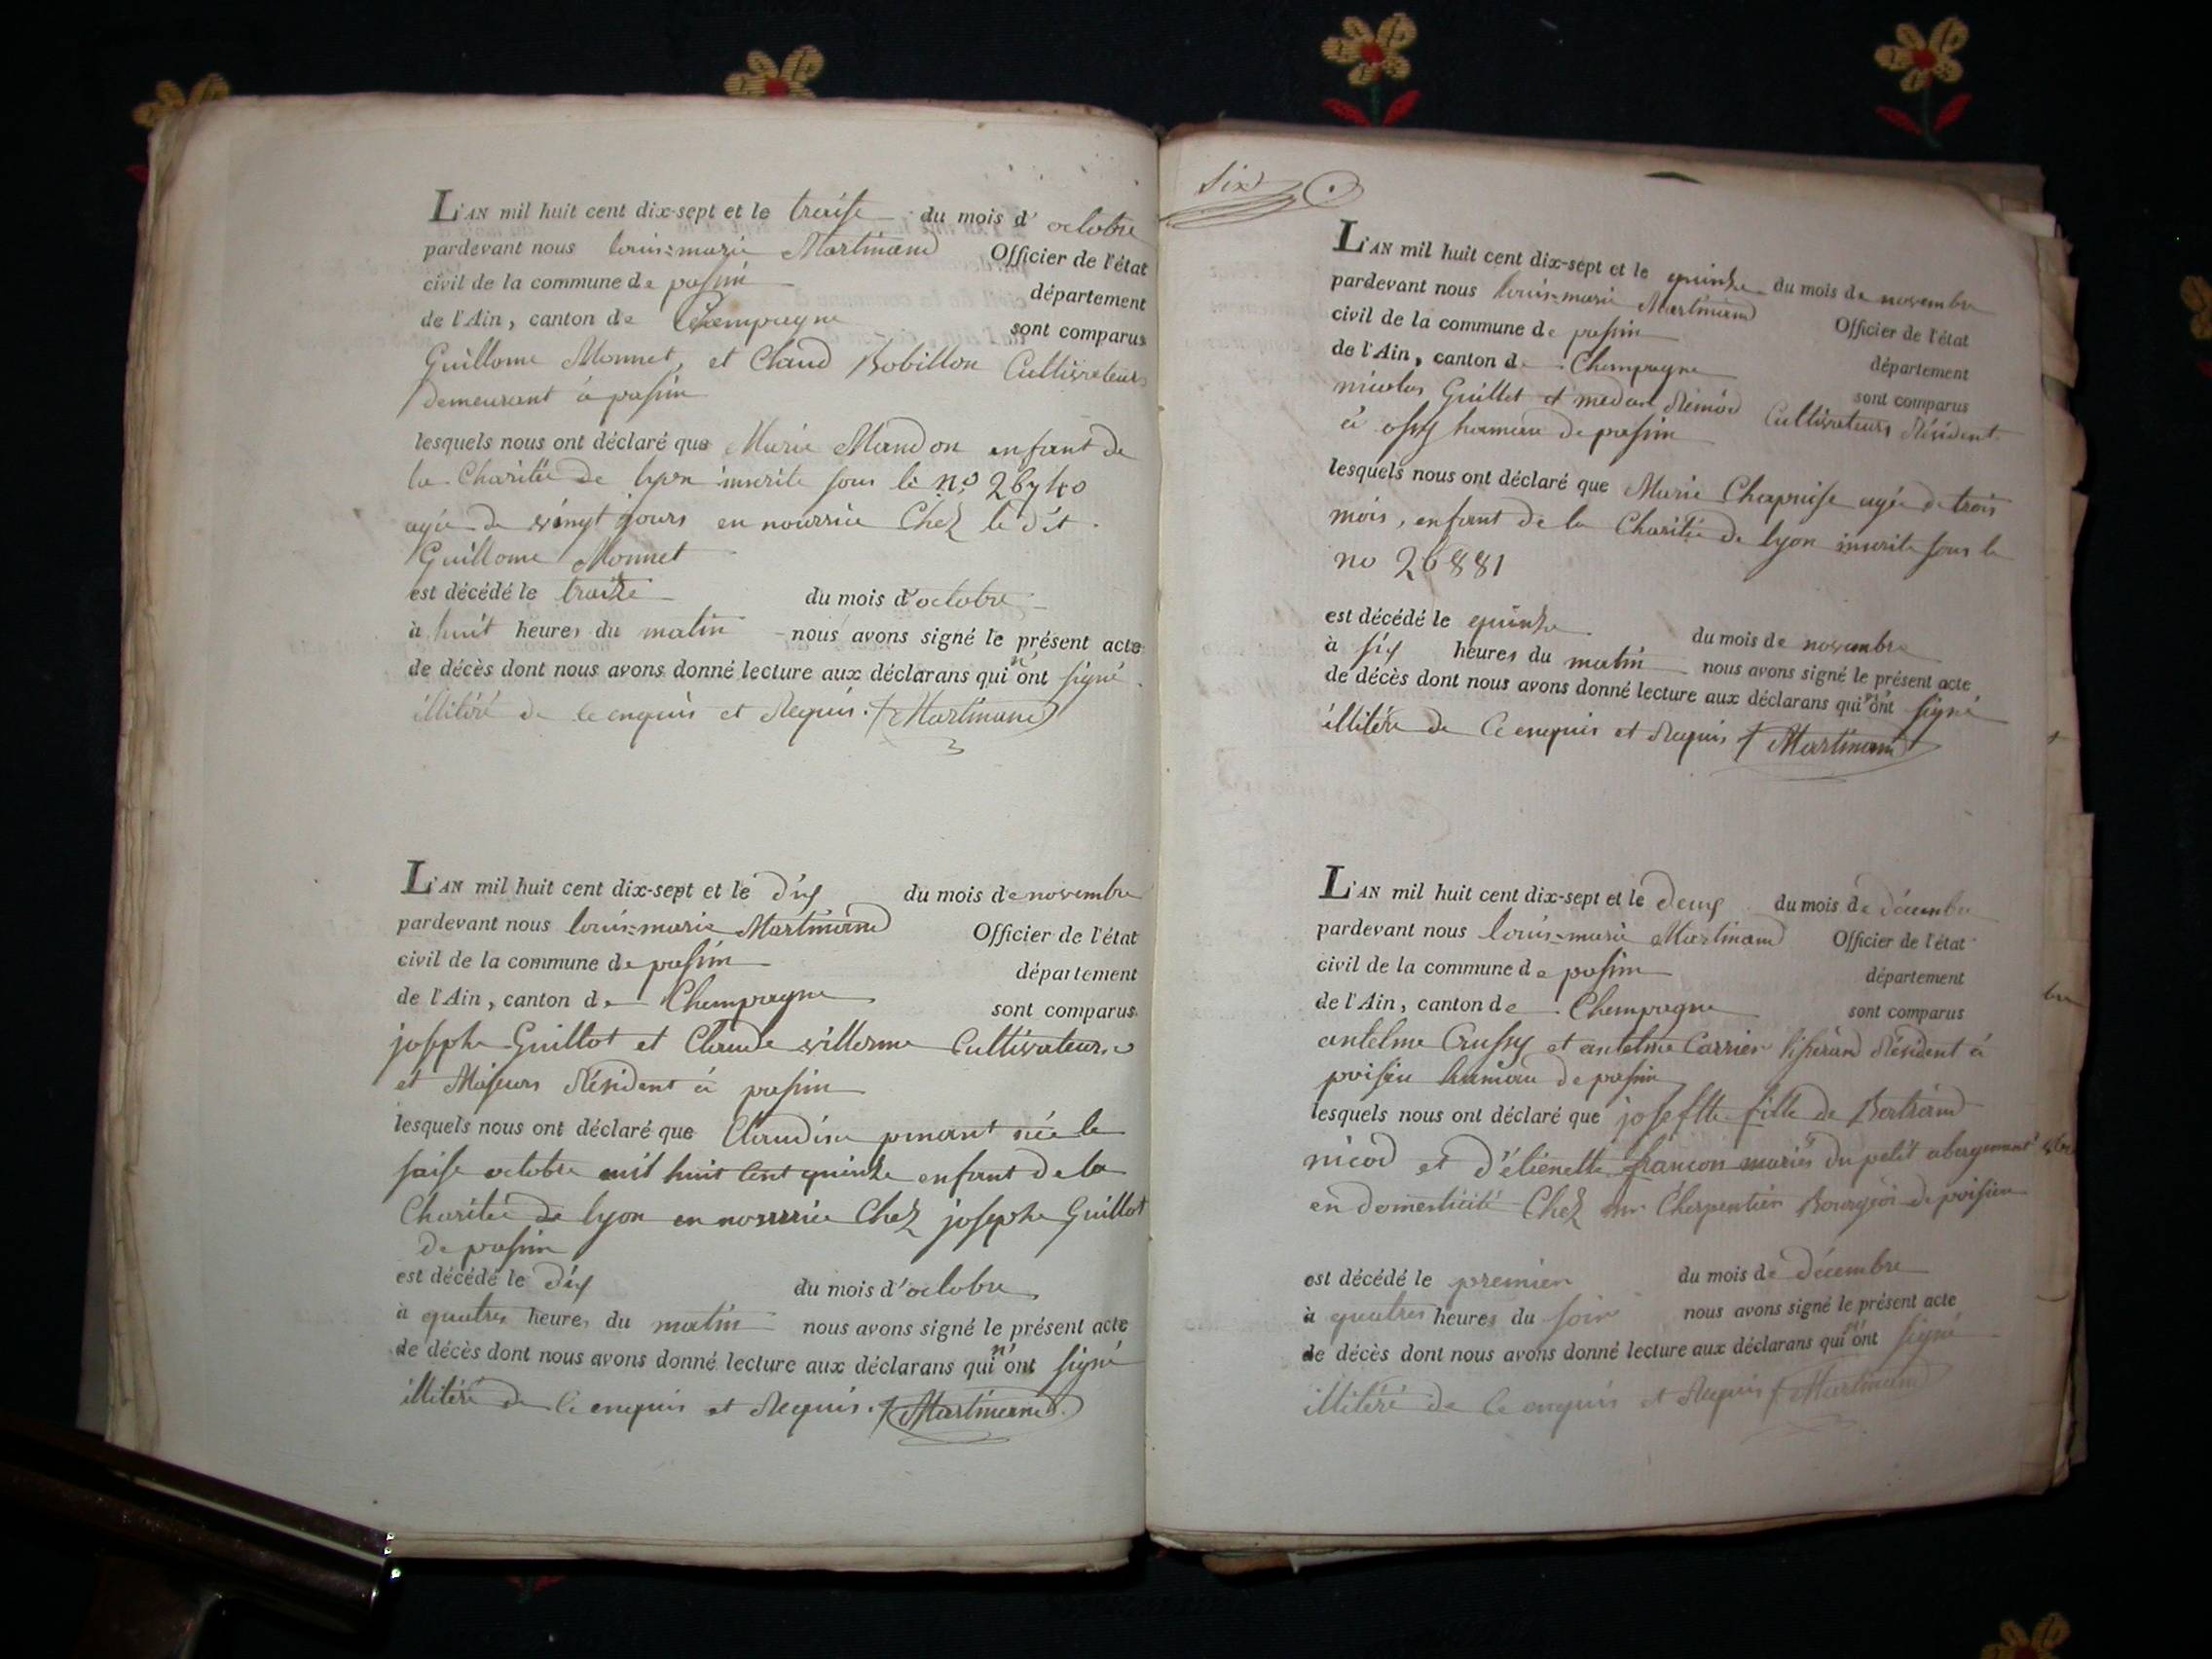 L'AN mil huit cent dix-sept et le treise du mois d'octobre
pardevant nous louis-marie Martinand Officier de l'état
civil de la commune de pasin département
de l'Ain, canton de Chempagne sont comparus
Guillome Monnet, et Claud Bobillon Cultivateurs
demeurant à pasin
lesquels nous ont déclaré que Marie Mandon enfant de
la Charitée de lyon inscrite sous le no 26740
agée de vingt jours en nourrice Chez le dit
Guillome Monnet
est décédé le treize du mois d'octobre
à huit heures du matin nous avons signé le présent acte
de décès dont nous avons donné lecture aux déclarans qui n'ont signé
illitéré de ce enquis et Requis. Martinand
L'AN mil huit cent dix-sept et le dix du mois de novembre
pardevant nous louis-marie Martinand Officier de l'état
civil de la commune de pasin département
de l'Ain, canton de Chempagne sont comparus
josephe Guillot et Claude villerme Cultivateurs
et Majeurs Résident à pasin
lesquels nous ont déclaré que Claudine née le
saise octobre mil huit cent quinze enfant de la
Charitée de lyon en nourrice Chez josephe Guillot
de pasin
est décédé le dix du mois d'octobre
à quatres heures du matin nous avons signé le présent acte
de décès dont nous avons donné lecture aux déclarans qui n'ont signé
illitéré de ce enquis et Requis. Martinand
Six
L'AN mil huit cent dix-sept et le quinze du mois de novembre
pardevant nous louis-marie Martinand Officier de l'état
civil de la commune de pasin département
de l'Ain, canton de Chempagne sont comparus
nicolas Guillet et Cultivateurs Résident
à ossy hameau de pasin
lesquels nous ont déclaré que Marie Chapuise agée de trois
mois, enfant de la Charitée de lyon inscrite sous le
no 26881
est décédé le quinze du mois de novembre
à six heures du matin nous avons signé le présent acte
de décès dont nous avons donné lecture aux déclarans qui n'ont signé
illitéré de Ce enquis et Requis Martinand
L'AN mil huit cent dix-sept et le deux du mois de décembre
pardevant nous louis-marie Martinand Officier de l'état
civil de la commune de pasin département
de l'Ain, canton de Chempagne sont comparus
antelme Crussy et antelme Carrier tisserand Résident à
poisieu hameau de pasin
lesquels nous ont déclaré que josephte fille de Bertrand
nicod et d'étienette francon mariés du petit abergement
en domesticité Chez mr Cherpentier Bourgeois de poisieu
est décédé le premier du mois de décembre
à quatres heures du soir nous avons signé le présent acte
de décès dont nous avons donné lecture aux déclarans qui n'ont signé
illitéré de Ce enquis et Requis Martinand